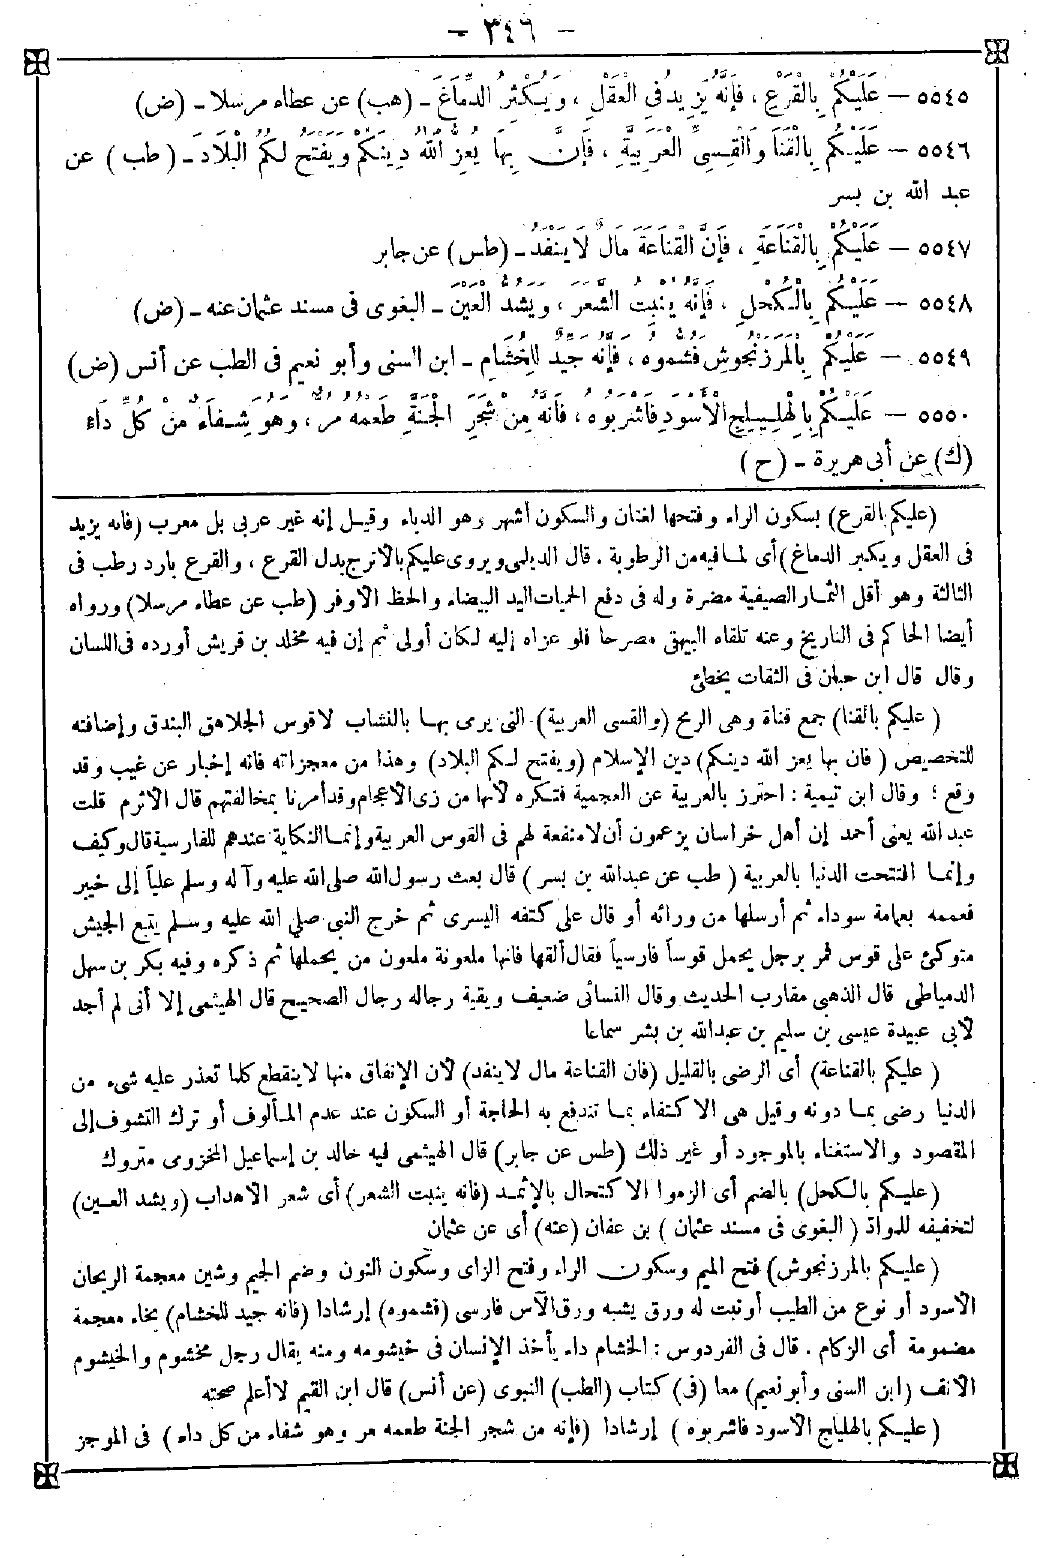 - ٣٤٦ -
٥٥٤٥ - عَلَيْكُمْ بِالْقَرْعِ ، فَإِنَّهُ يَزِيدُ فِي الْعَقْلِ ، وَيُكْثِرُ الدِّمَاغَ - (هب) عن عطاء مرسلا - (ض)
٥٥٤٦ - عَلَيْكُمْ بِالْقَنَا وَالْقِسِيِّ الْعَرَبِيَّةِ ، فَإِنَّ بِهَا يُعِزُّ اللهُ دِينَكُمْ وَيَفْتَحُ لَكُمُ الْبِلَادَ - ( طب ) عن
عبد الله بن بسر
٥٥٤٧ - عَلَيْكُمْ بِالْقَنَاعَةِ ، فَإِنَّ الْقَنَاعَةَ مَالٌ لَا يَنْفَدُ - (طس) عن جابر
٥٥٤٨ - عَلَيْكُمْ بِالْكُحْلِ ، فَإِنَّهُ يُنْبِتُ الشَّعَرَ ، وَيَشُدُّ الْعَيْنَ - البغوى فى مسند عثمان عنه - (ض)
٥٥٤٩ - عَلَيْكُمْ بِالْمَرْزَنْجُوشِ فَشُمُّوهُ ، فَإِنَّهُ جَيِّدٌ لِلْخُشَامِ - ابن السنى وأبو نعيم فى الطب عن أنس (ض)
٥٥٥٠ - عَلَيْكُمْ بِالْهَلِيلِجِ الْأَسْوَدِ فَاشْرَبُوهُ ، فَإِنَّهُ مِنْ شَجَرِ الْجَنَّةِ طَعْمُهُ مُرٌّ ، وَهُوَ شِفَاءٌ مِنْ كُلِّ دَاءٍ
(ك) عن أبى هريرة - (ح)
(عليكم بالقرع) بسكون الراء وفتحها لغتان والسكون أشهر وهو الدباء وقيل إنه غير عربى بل معرب (فانه يزيد
فى العقل ويكبر الدماغ) أى لما فيه من الرطوبة . قال الديلمى ويروى عليكم بالأترج بدل القرع ، والقرع بارد رطب فى
الثالثة وهو أقل الثمار الصيفية مضرة وله فى دفع الحميات اليد البيضاء والحظ الأوفر (طب عن عطاء مرسلا) ورواه
أيضا الحاكم فى التاريخ وعنه تلقاه البيهقى مصرحا فلو عزاه إليه لكان أولى ثم إن فيه مخلد بن قريش أورده فى اللسان
وقال قال ابن حبان فى الثقات يخطئ
( عليكم بالقنا) جمع قناة وهى الرمح (والقسى العربية) التى يرمى بها بالنشاب لا قوس الجلاهق البندق وإضافته
للتخصيص ( فان بها يعز الله دينكم) دين الإسلام (ويفتح لكم البلاد) وهذا من معجزاته فانه إخبار عن غيب وقد
وقع ؛ وقال ابن تيمية : احترز بالعربية عن العجمية فتكره لأنها من زى الأعجام وقد أمرنا بمخالفتهم قال الأثرم قلت
عبد الله يعنى أحمد إن أهل خراسان يزعمون أن لا منفعة لهم فى القوس العربية وإنما النكاية عندهم للفارسية قال وكيف
وإنما افتتحت الدنيا بالعربية ( طب عن عبدالله بن بسر ) قال بعث رسول الله صلى الله عليه وآله وسلم علياً إلى خيبر
فعممه بعمامة سوداء ثم أرسلها من ورائه أو قال على كتفه اليسرى ثم خرج النبى صلى الله عليه وسلم يتبع الجيش
متوكئ على قوس فمر برجل يحمل قوساً فارسياً فقال ألقها فانها ملعونة ملعون من يحملها ثم ذكره وفيه بكر بن سهل
الدمياطى قال الذهبى مقارب الحديث وقال النسائى ضعيف وبقية رجاله رجال الصحيح قال الهيثمى إلا أنى لم أجد
لأبى عبيدة عيسى بن سليم بن عبدالله بن بشر سماعا
( عليكم بالقناعة) أى الرضى بالقليل (فان القناعة مال لاينفد) لأن الإنفاق منها لا ينقطع كلما تعذر عليه شىء من
الدنيا رضى بما دونه وقيل هى الاكتفاء بما تندفع به الحاجة أو السكون عند عدم المألوف أو ترك التشوف إلى
المقصود والاستغناء بالموجود أو غير ذلك (طس عن جابر) قال الهيثمى فيه خالد بن إسماعيل المخزومى متروك
(عليكم بالكحل) بالضم أى الزموا الاكتحال بالإثمد (فانه ينبت الشعر) أى شعر الأهداب (ويشد العين)
لتخفيفه للمواد ( البغوى فى مسند عثمان ) بن عفان (عنه) أى عن عثمان
(عليكم بالمرزنجوش) فتح الميم وسكون الراء وفتح الزاى وسكون النون وضم الجيم وشين معجمة الريحان
الأسود أو نوع من الطيب أو نبت له ورق يشبه ورق الآس فارسى (فشموه) إرشادا (فانه جيد للخشام) بخاء معجمة
مضمومة أى الزكام . قال فى الفردوس : الخشام داء يأخذ الإنسان فى خيشومه ومنه يقال رجل مخشوم والخيشوم
الأنف (ابن السنى وأبو نعيم) معا (فى) كتاب (الطب) النبوى (عن أنس) قال ابن القيم لا أعلم صحته
( عليكم بالهليلج الأسود فاشربوه ) إرشادا (فإنه من شجر الجنة طعمه مر وهو شفاء من كل داء ) فى الموجز